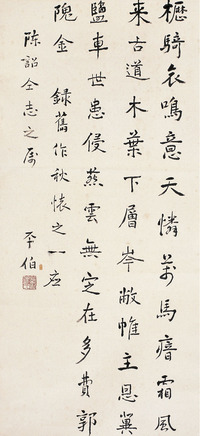 櫪騎哀鳴意天憐萬馬瘖霜風
來古道木葉下層岑敝帷主恩冀
鹽車世患侵燕雲無定在多費郭
隗金 錄舊作秋懷之一應
陳詔仝志之屬 平伯